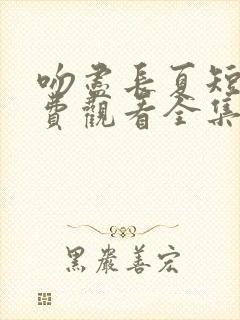 吻盡長夏短
費觀看全集
黑嚴善宏